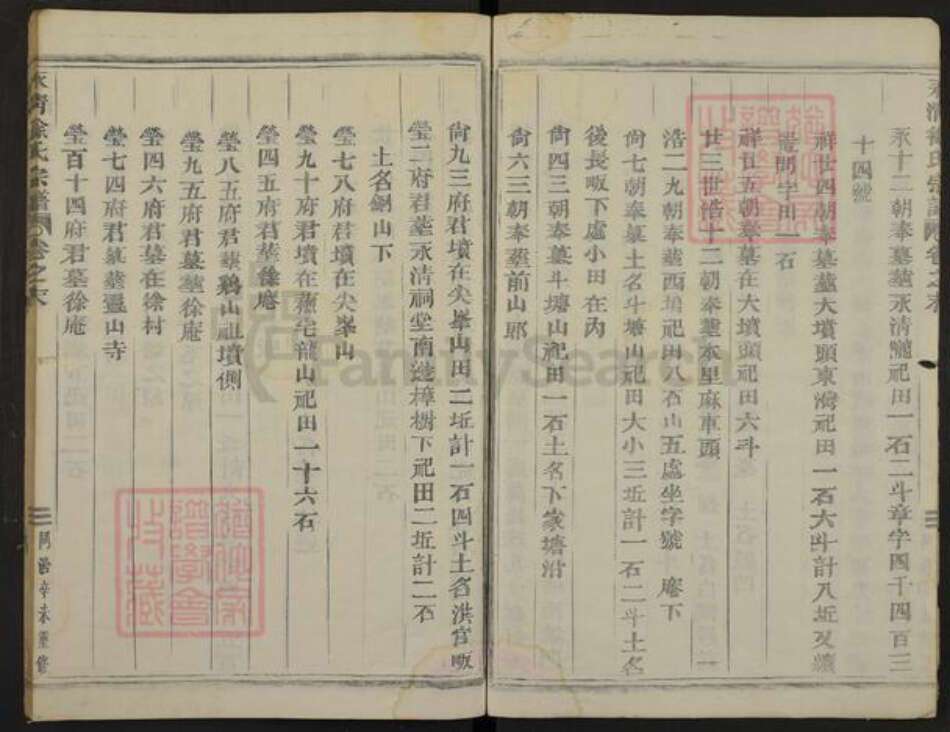 永清徐氏宗譜卷之末
永十二朝奉墓塟永清祀田一石二斗章字四千四百三
十四號
祥廿四朝奉墓塟大墳頭東海祀田一石六斗計八坵又續
問字田一石
祥廿五朝奉墓在大墳頭祀田六斗
廿三世浩十二朝奉塟本里麻車頭
浩二九朝奉塟西塢祀田八石山五處坐字號庵下
尙七朝奉墓土名斗塘山祀田大小三坵計一石二斗土名
後長畈下處小田在內
尙四三朝奉墓斗塘山祀田一石土名下家塘沿
尙六三朝奉塟前山郎
尙九三府君墳在尖峯山田二坵計一石四斗土名洪官畈
瑩二府君塟永清祠堂南邊樟樹下祀田二坵計二石
土名山下
瑩七八府君墳在尖峯山
瑩九十府君墳在宅龍山祀田一十六石
瑩四五府君塟徐庵
瑩八五府君塟鷄山祖墳側
瑩九五府君墓塟徐庵
瑩四六府君墓在徐村
瑩七四府君墓塟山寺
瑩百十四府君墓徐庵
永清徐氏宗譜卷之末
同治辛未重修
FamilySearch